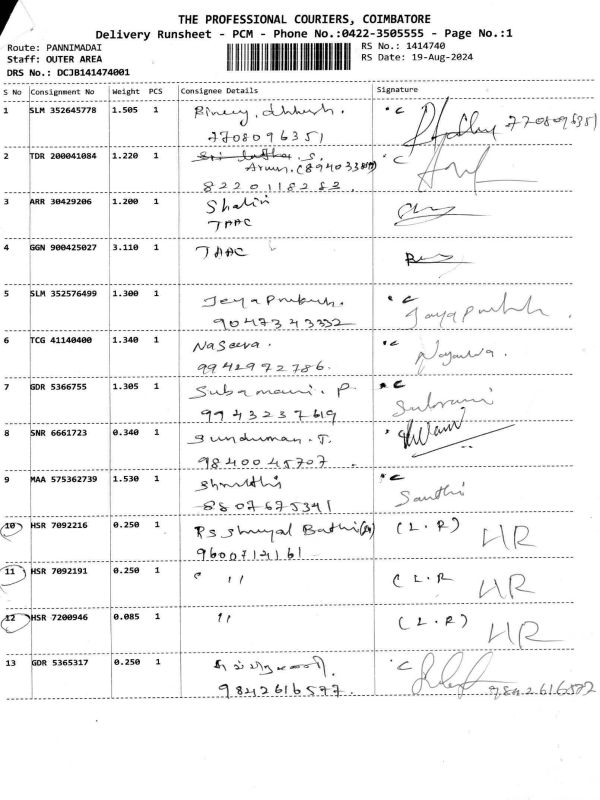 THE PROFESSIONAL COURIERS, COIMBATORE
Delivery Runsheet - PCM - Phone No.:0422-3505555 - Page No.:1
Route: PANNIMADAI RS No.: 1414740
Staff: OUTER AREA RS Date: 19-Aug-2024
DRS No.: DCJB141474001
S No Consignment No Weight PCS Consignee Details Signature
1 SLM 352645778 1.505 1 C
7708096351 7708096351
2 TDR 200041084 1.220 1 C
Arun.
8220118283
3 ARR 30429206 1.200 1 Shalini
TAAC
4 GGN 900425027 3.110 1 TAAC
5 SLM 352576499 1.300 1 Jeya Prakash. C Jayaprakash.
9047343332
6 TCG 41140400 1.340 1 Naseera. C
9942972786.
7 GDR 5366755 1.305 1 Subamani. P. C
9943237619
8 SNR 6661723 0.340 1
9840045707
9 MAA 575362739 1.530 1 C
8807675341 Santhi
10 HSR 7092216 0.250 1 (L.R) HR
9600714161
11 HSR 7092191 0.250 1 " (L.R HR
12 HSR 7200946 0.085 1 " (L.R) HR
13 GDR 5365317 0.250 1 C
9842616577. 9842616577